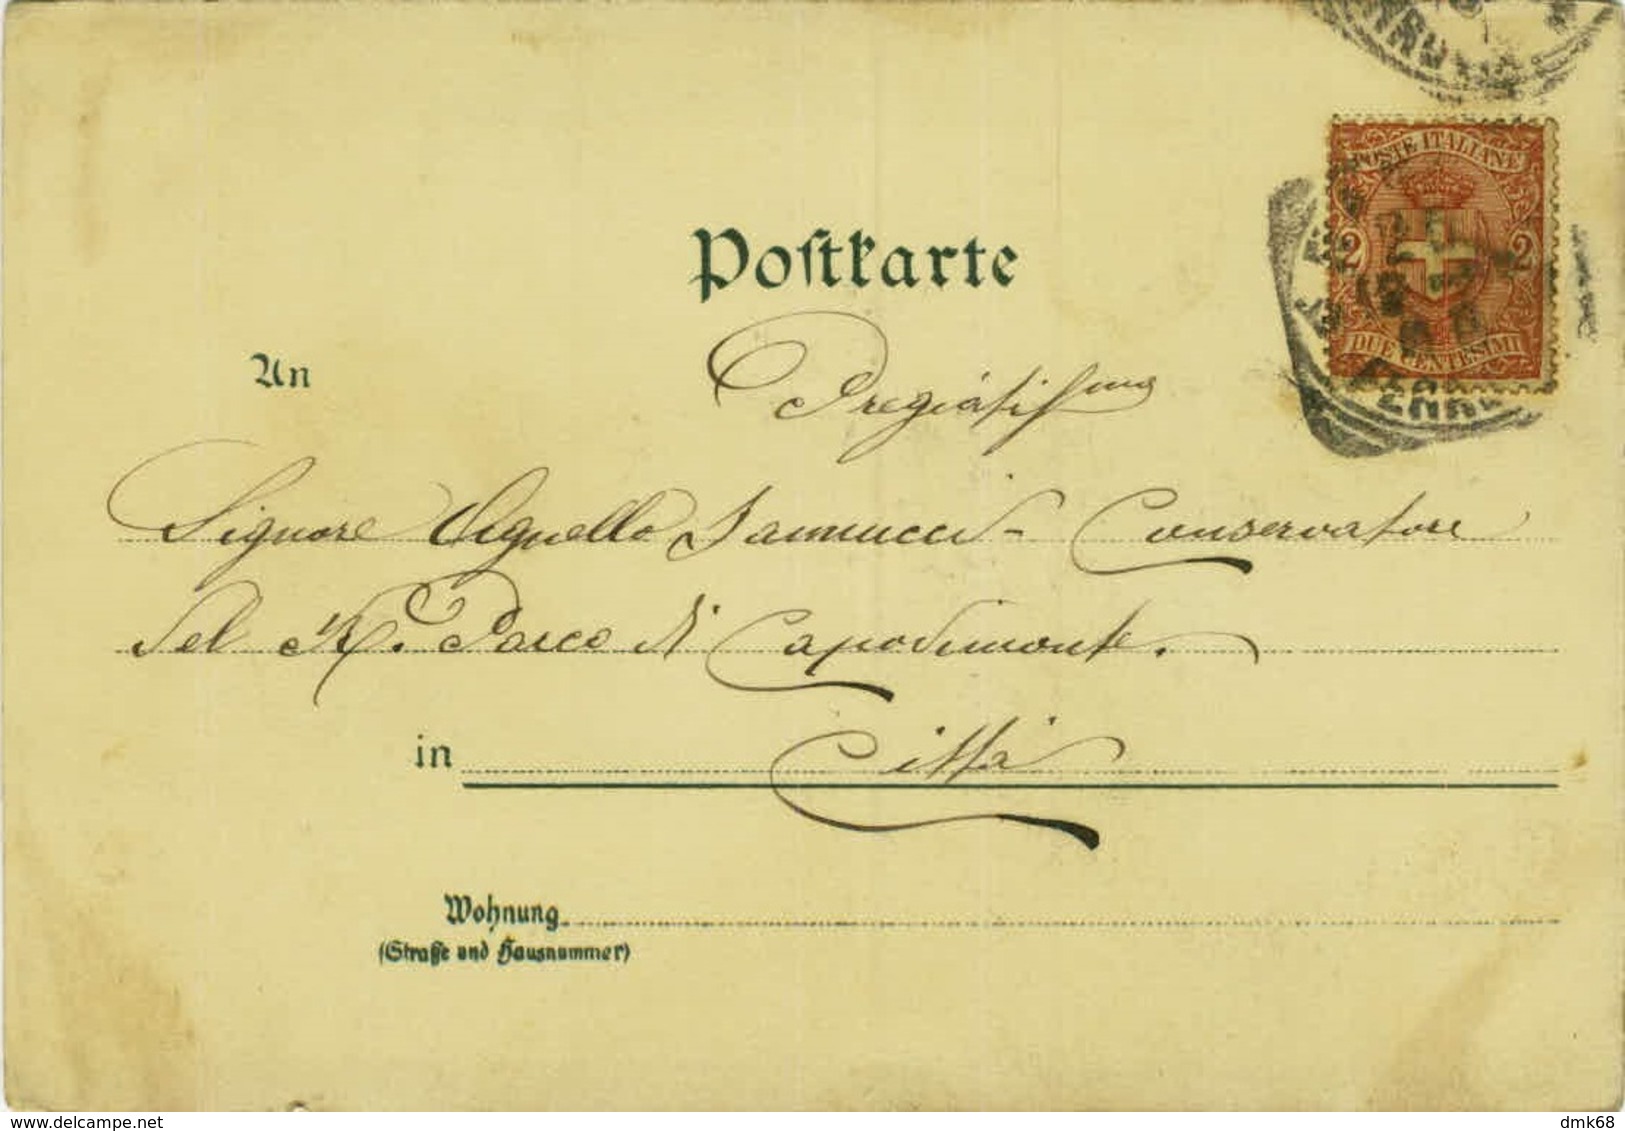 POSTE ITALIANE
2 2
DUE CENTESIMI
FERRO
Postkarte
An
Pregiatissimo
Signore Agnello Iannucci - Conservatore
del R. Parco di Capodimonte.
in Città
Wohnung
(Straße und Hausnummer)
dmk68